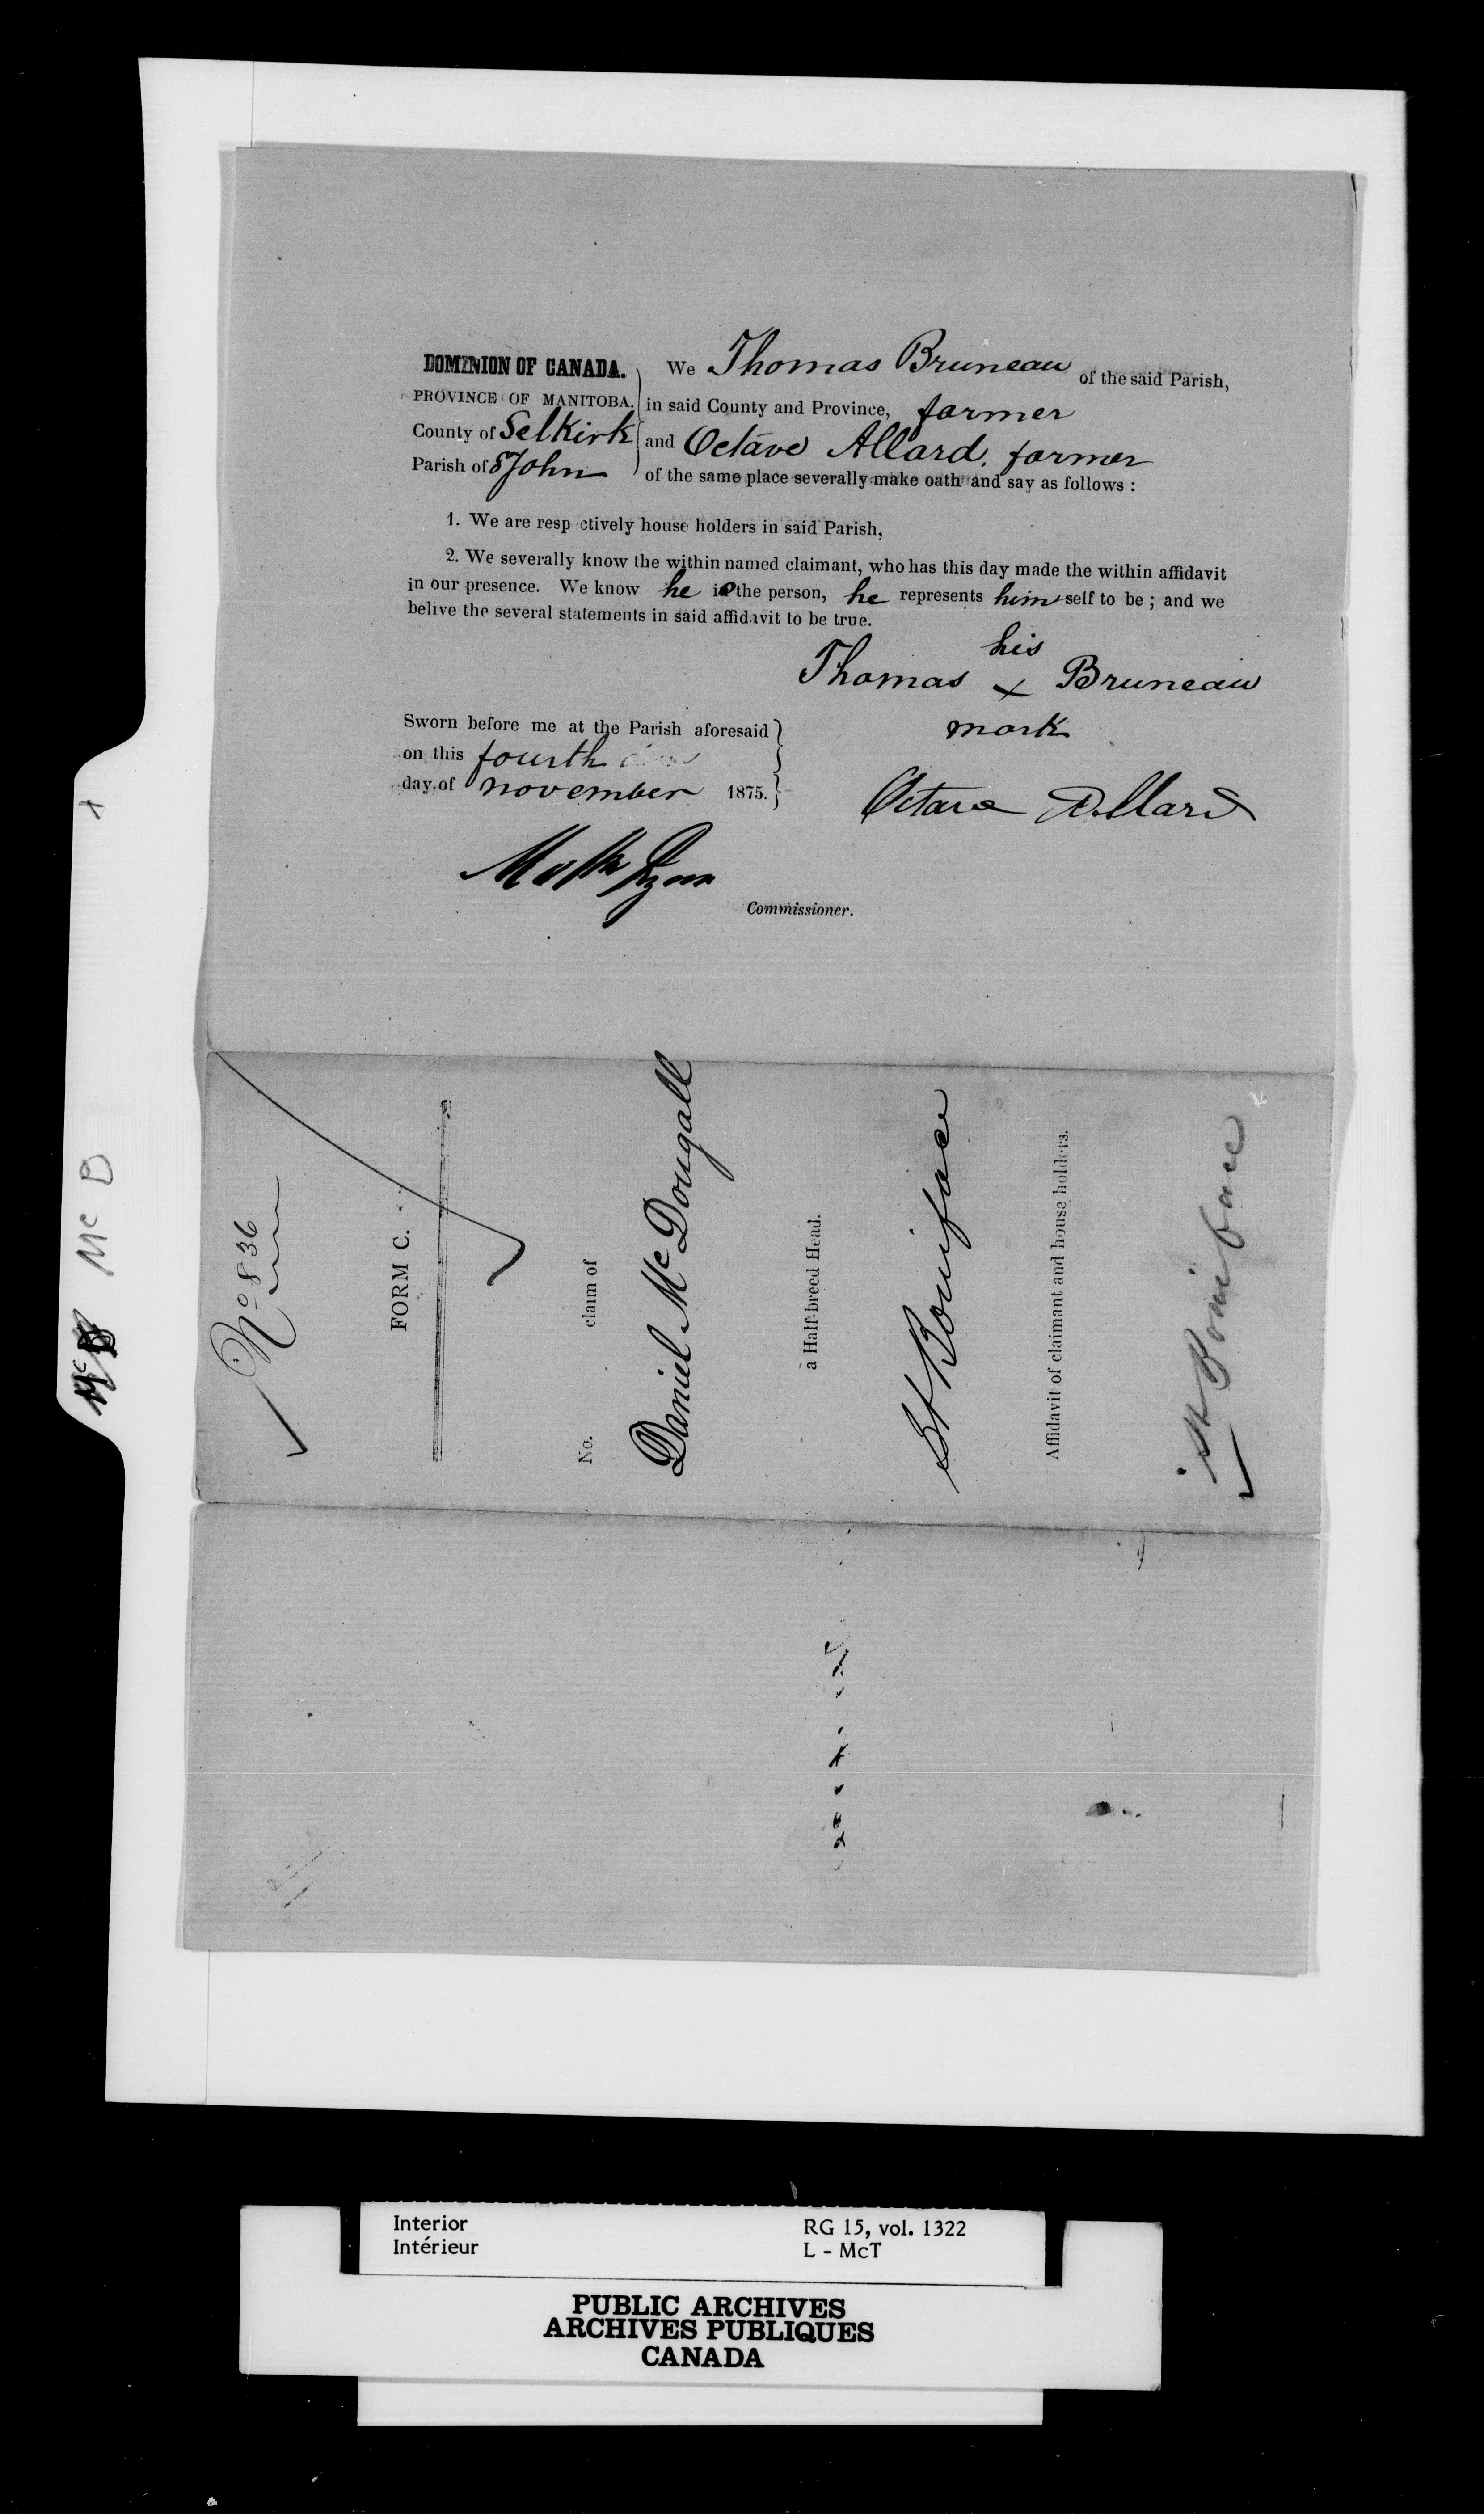 DOMINION OF CANADA.
PROVINCE OF MANITOBA.
County of Selkirk
Parish of St John
We Thomas Bruneau of the said Parish,
in said County and Province, farmer
and Octave Allard, farmer
of the same place severally make oath and say as follows :
1. We are resp ctively house holders in said Parish,
2. We severally know the within named claimant, who has this day made the within affidavit
in our presence. We know he is the person, he represents himself to be ; and we
belive the several statements in said affidavit to be true.
his
Thomas x Bruneau
mark
Sworn before me at the Parish aforesaid
on this fourth
day of november 1875.
Octave Allard
Matth Ryan
Commissioner.
No 836
FORM C.
No. claim of
Daniel McDougall
a Half-breed Head.
St Boniface
Affidavit of claimant and house holders.
St Boniface
Mc D
Interior
Intérieur
RG 15, vol. 1322
L - McT
PUBLIC ARCHIVES
ARCHIVES PUBLIQUES
CANADA